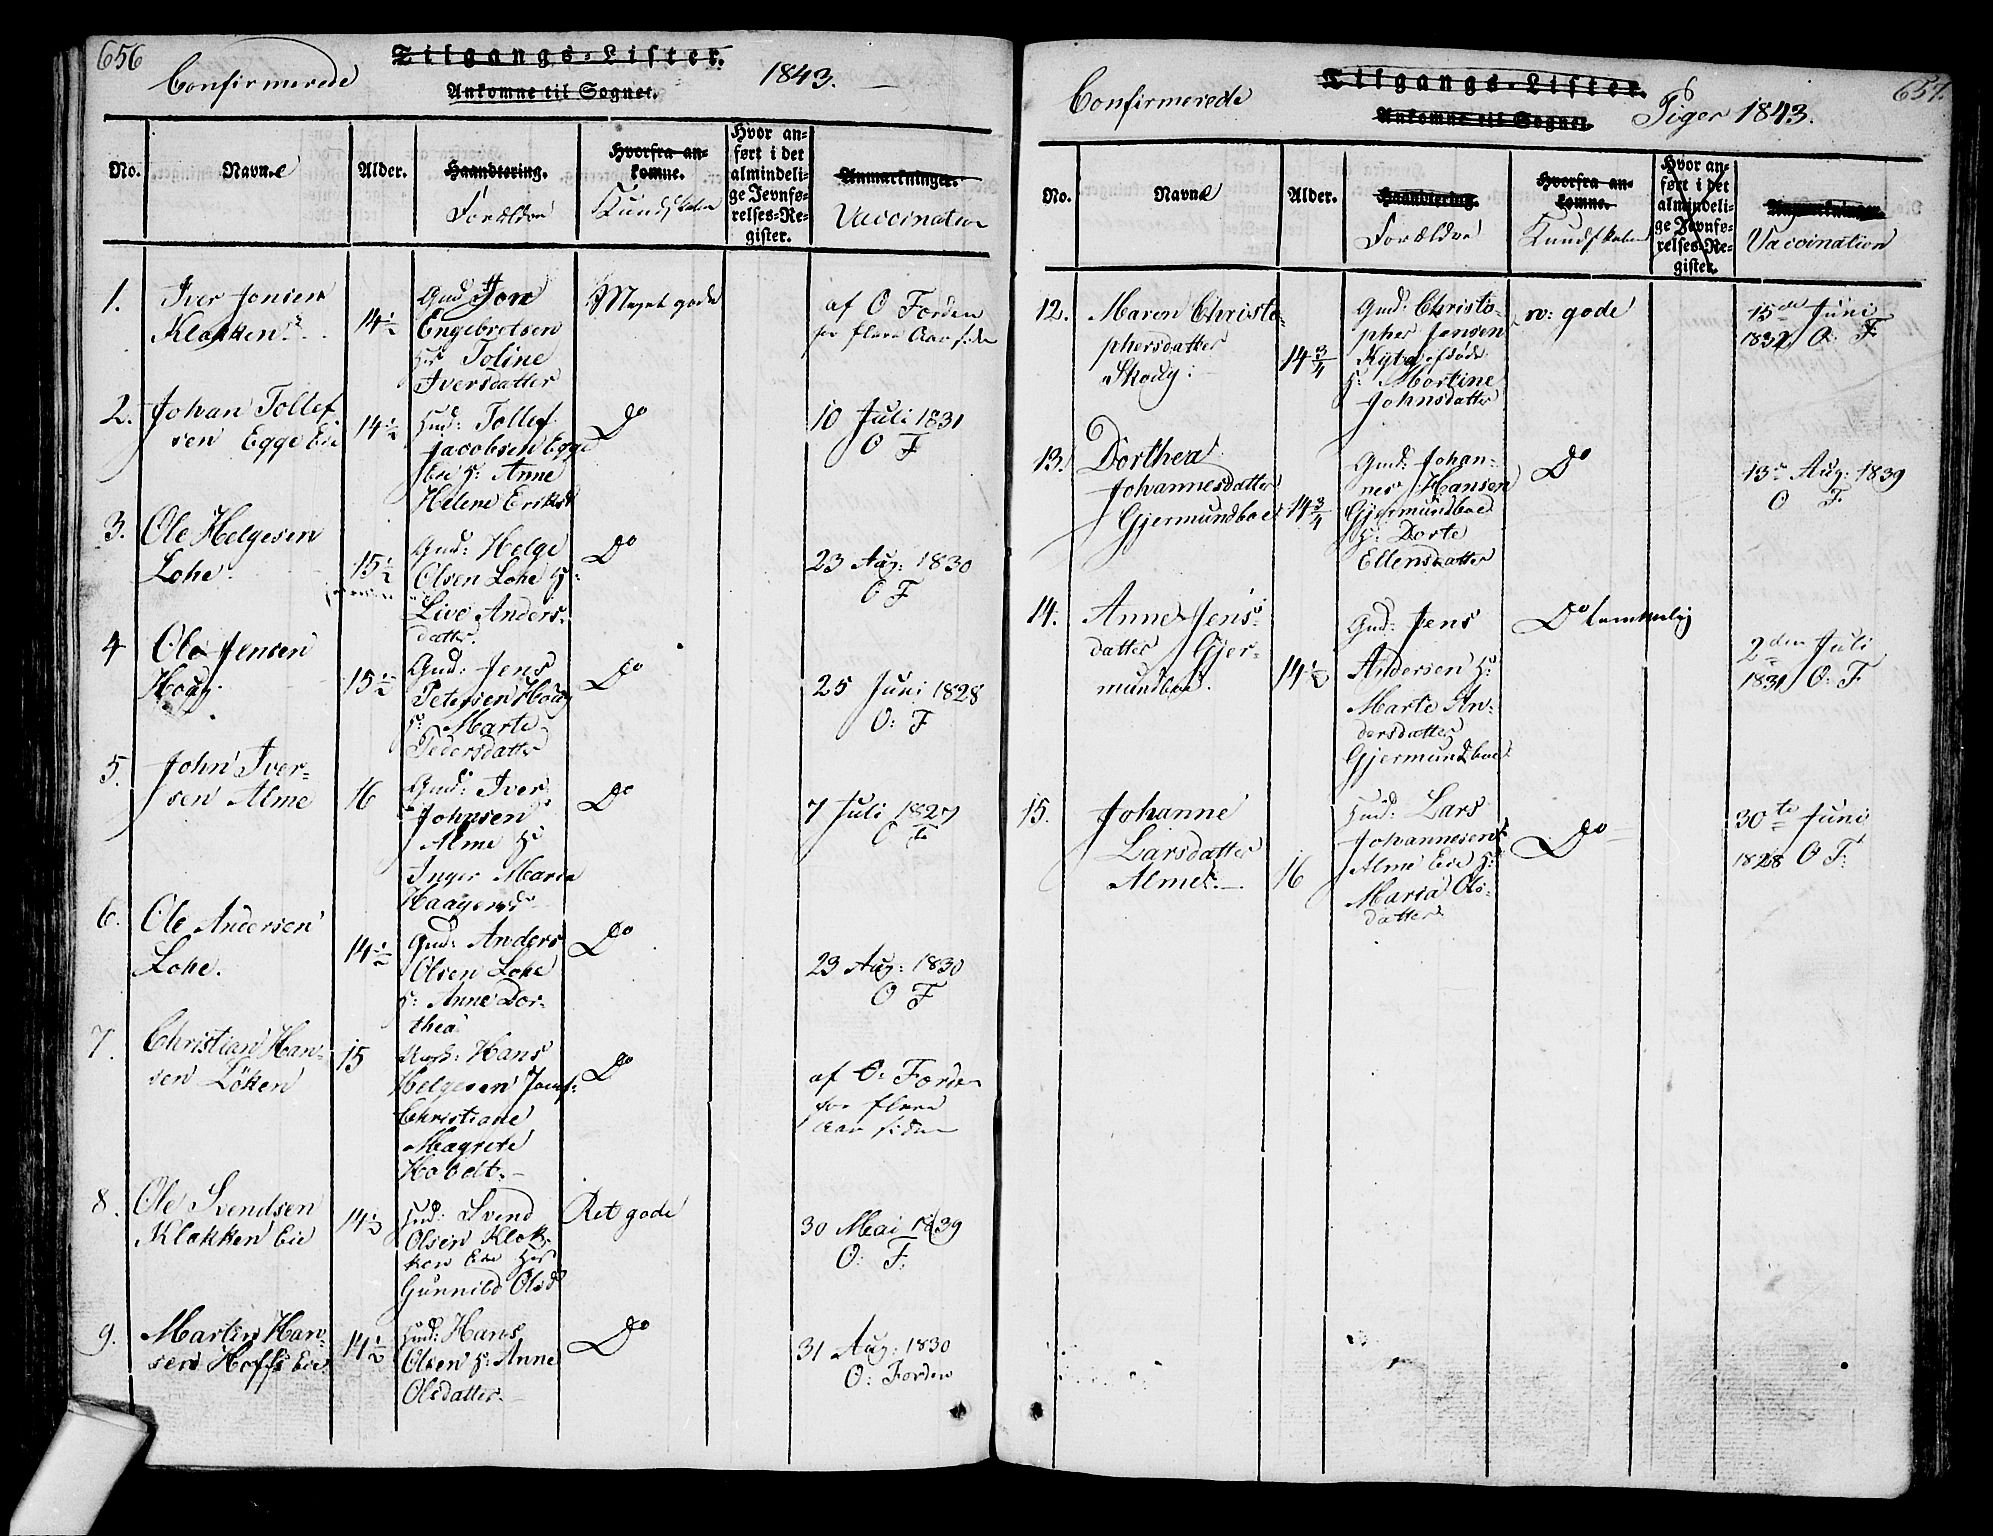 656
Confirmerede
Tilgangs-Lister.
Ankomne til Sognet.
1843.
No.
Navne
Alder.
Haandtering.
Forældre
Hvorfra an-
komne.
Kundskaber
Hvor an-
ført i det
almindeli-
ge Jevnfø-
relses-Re-
gister.
Anmærkninger.
Vaccination
1.
Iver Jonsen
Klækken
14½
Gmd Jon
Engebretsen
Hs Toline
Iversdatter
Meget gode
af O Forden
for flere Aar siden
2.
Johan Tollef
sen Egge Eie
14½
Hmd: Tollef
Jacobsen Egge
Eie H: Anne
Helene Eriksd
Do
10 Juli 1831
O F
3.
Ole Helgesen
Lohe.
15½
Gmd: Helge
Olsen Lohe H:
Live Anders-
datter
Do
23 Aug: 1830
O F
4
Ole Jensen
Houg.
15½
Gmd: Jens
Petersen Houg
H: Marte
Pedersdatter
Do
25 Juni 1828
O: F
5.
John Iver-
sen Alme
16
Gmd: Iver
Johnsen
Alme H:
Inger Maria
Haagensd
Do
7 Juli 1827
O F
6.
Ole Andersen
Lohe.
14½
Gmd: Anders
Olsen Lohe
H: Anne Dor-
thea
Do
23 Aug: 1830
O F
7.
Christian Han-
sen Löken
15
Hans
Helgesen
Christiane
Magrete
Do
af O: Forden
for flere
Aar siden
8.
Ole Svendsen
Klækken Eie
14½
Hmd: Svend
Olsen Klæk-
ken Eie Hs
Gunnild Olsd
Ret gode
30 Mai 1839
O: F.
9.
Martin Han-
sen Hoffs Eie
14½
Hmd: Hans
Olsen H: Anne
Olsdatter
Do
31 Aug: 1830
O: Forden
657.
Confirmerede
Tilgangs-Lister.
Ankomne til Sognet.
Piger 1843.
No.
Navne
Alder.
Haandtering.
Forældre
Hvorfra an-
komne.
Kundskaber
Hvor an-
ført i det
almindeli-
ge Jevnfø-
relses-Re-
gister.
Anmærkninger.
Vaccination
12.
Maren Christo-
phersdatter
Skoug
14¾
Gmd: Christo-
pher Jensen
H: Martine
Johnsdatter
gode
15de Juni
1832 O: F.
13.
Dorthea
Johannesdatter
Gjermundboe
14¾
Gmd: Johan-
nes Hansen
Gjermundboe
H: Dorte
Ellensdatter
Do
13de Aug: 1839
O F.
14.
Anne Jens-
datter Gjer-
mundboe.
14½
Gmd: Jens
Andersen H:
Marte An-
dersdatter
Gjermundboe
Do temmelig
2den Juli
1831 O: F.
15.
Johanne
Larsdatter
Alme
16
Hmd: Lars
Johannesen
Alme Eie H:
Maria Ols-
datter
Do
30te Juni
1828 O F: